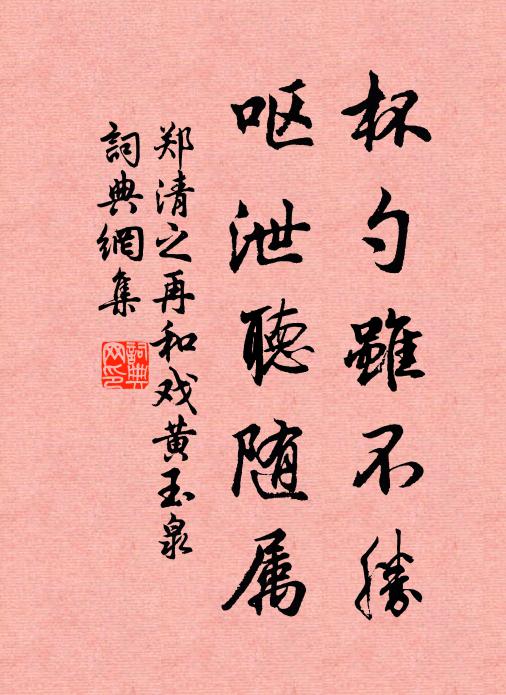 杯勺雖不勝
呕泄聽随属
郑清之再和戏黄玉泉
詞典網集
詞典
网印